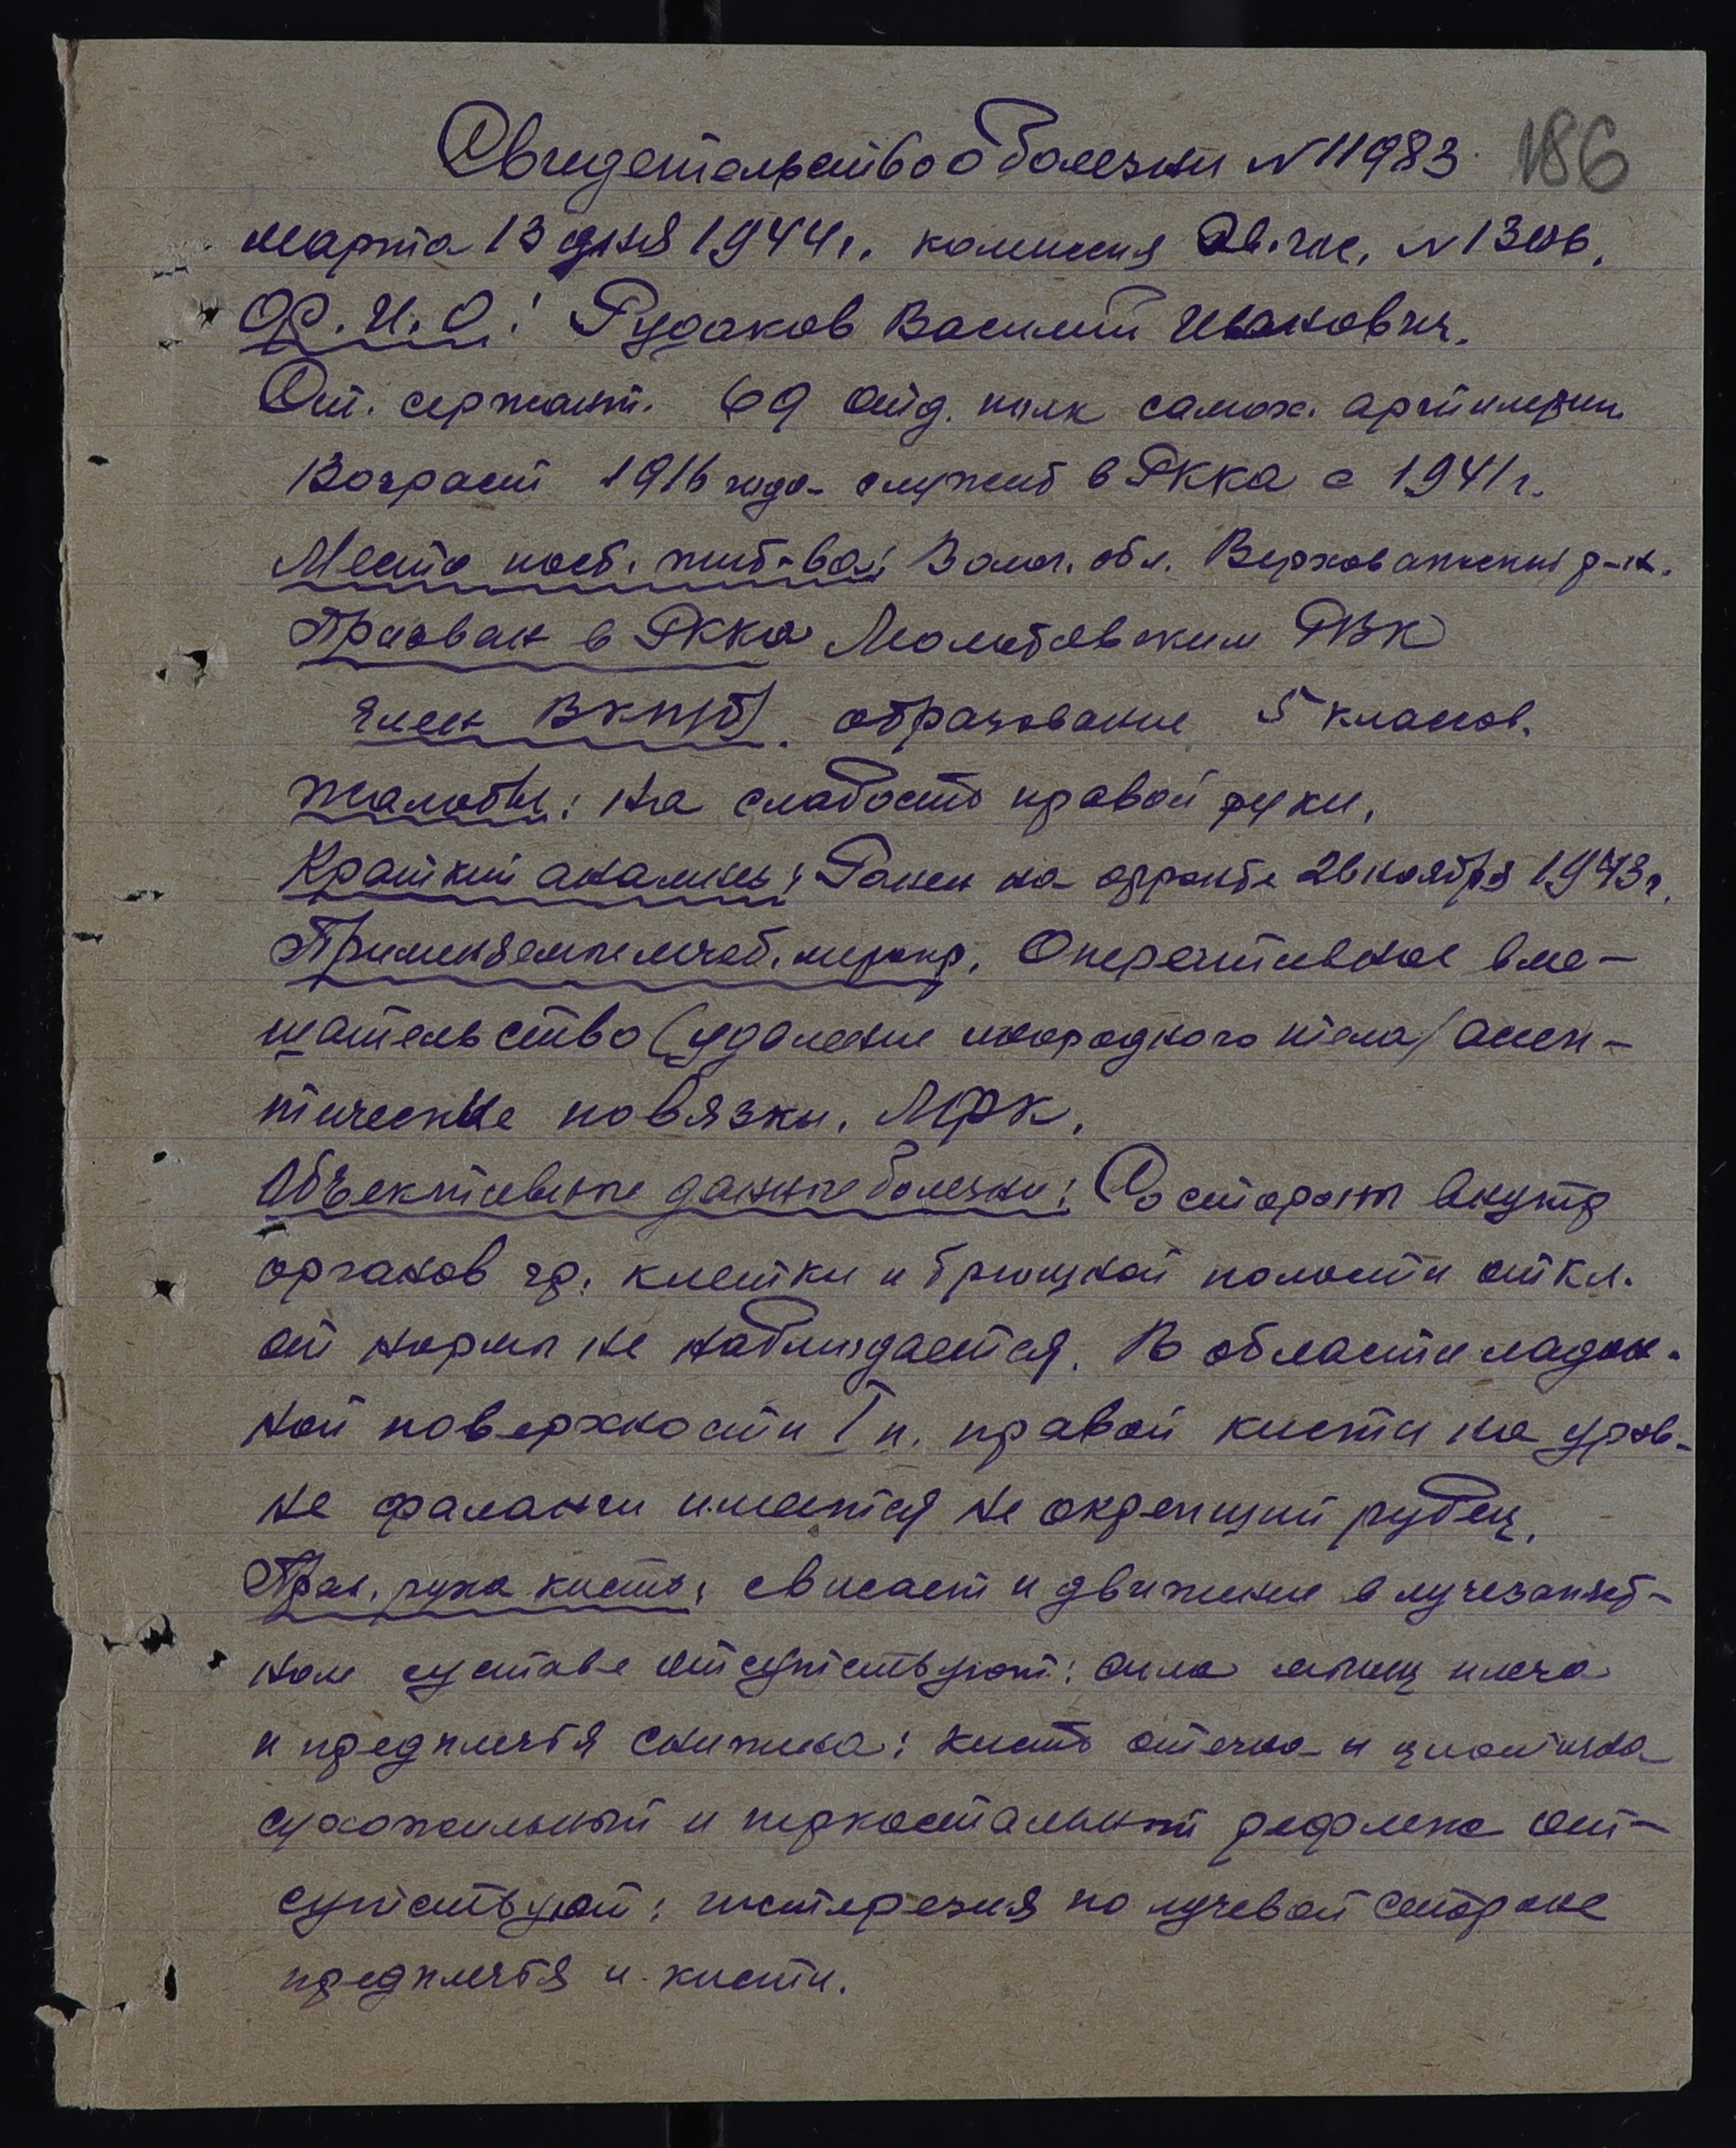 Свидетельство о болезни N 11983. 186
марта 13 дня 1944г. комиссия N 13
Ф.И.О: Рудаков Василий Иванович.
Ст. сержант. 69 отд. полк самох. артилерии
Возраст 1916 года служит в РККА с 1941г.
Место пост. жит-ва: Волог. обл. Верховажский р-н.
Призван в РККА Молотовским РВК
член ВКП(б). образование 5 классов.
Жалобы: на слабость правой руки.
Краткий анамнез: Ранен на фронте 26 ноября 1943г.
Применяемые лечеб. меропр. Оперативное вме-
шательство (удаление инородного тела) асеп-
тические повязки. ЛФК.
Объективные данные болезни: Со стороны внутр
органов гр. клетки и брюшной полости откл.
от нормы не наблюдается. В области ладон-
ной поверхности I п. правой кисти на уров-
не фаланги имеется не окрепший рубец.
Прав. рука кисть: свисает и движения в лучезапяст-
ном суставе отсутствуют: сила мышц плеча
и предплечья снижена: кисть отечна и цианична
сухожильный и периостальный рефлекс от-
сутствуют: гипстерезия по лучевой стороне
предплечья и кисти.